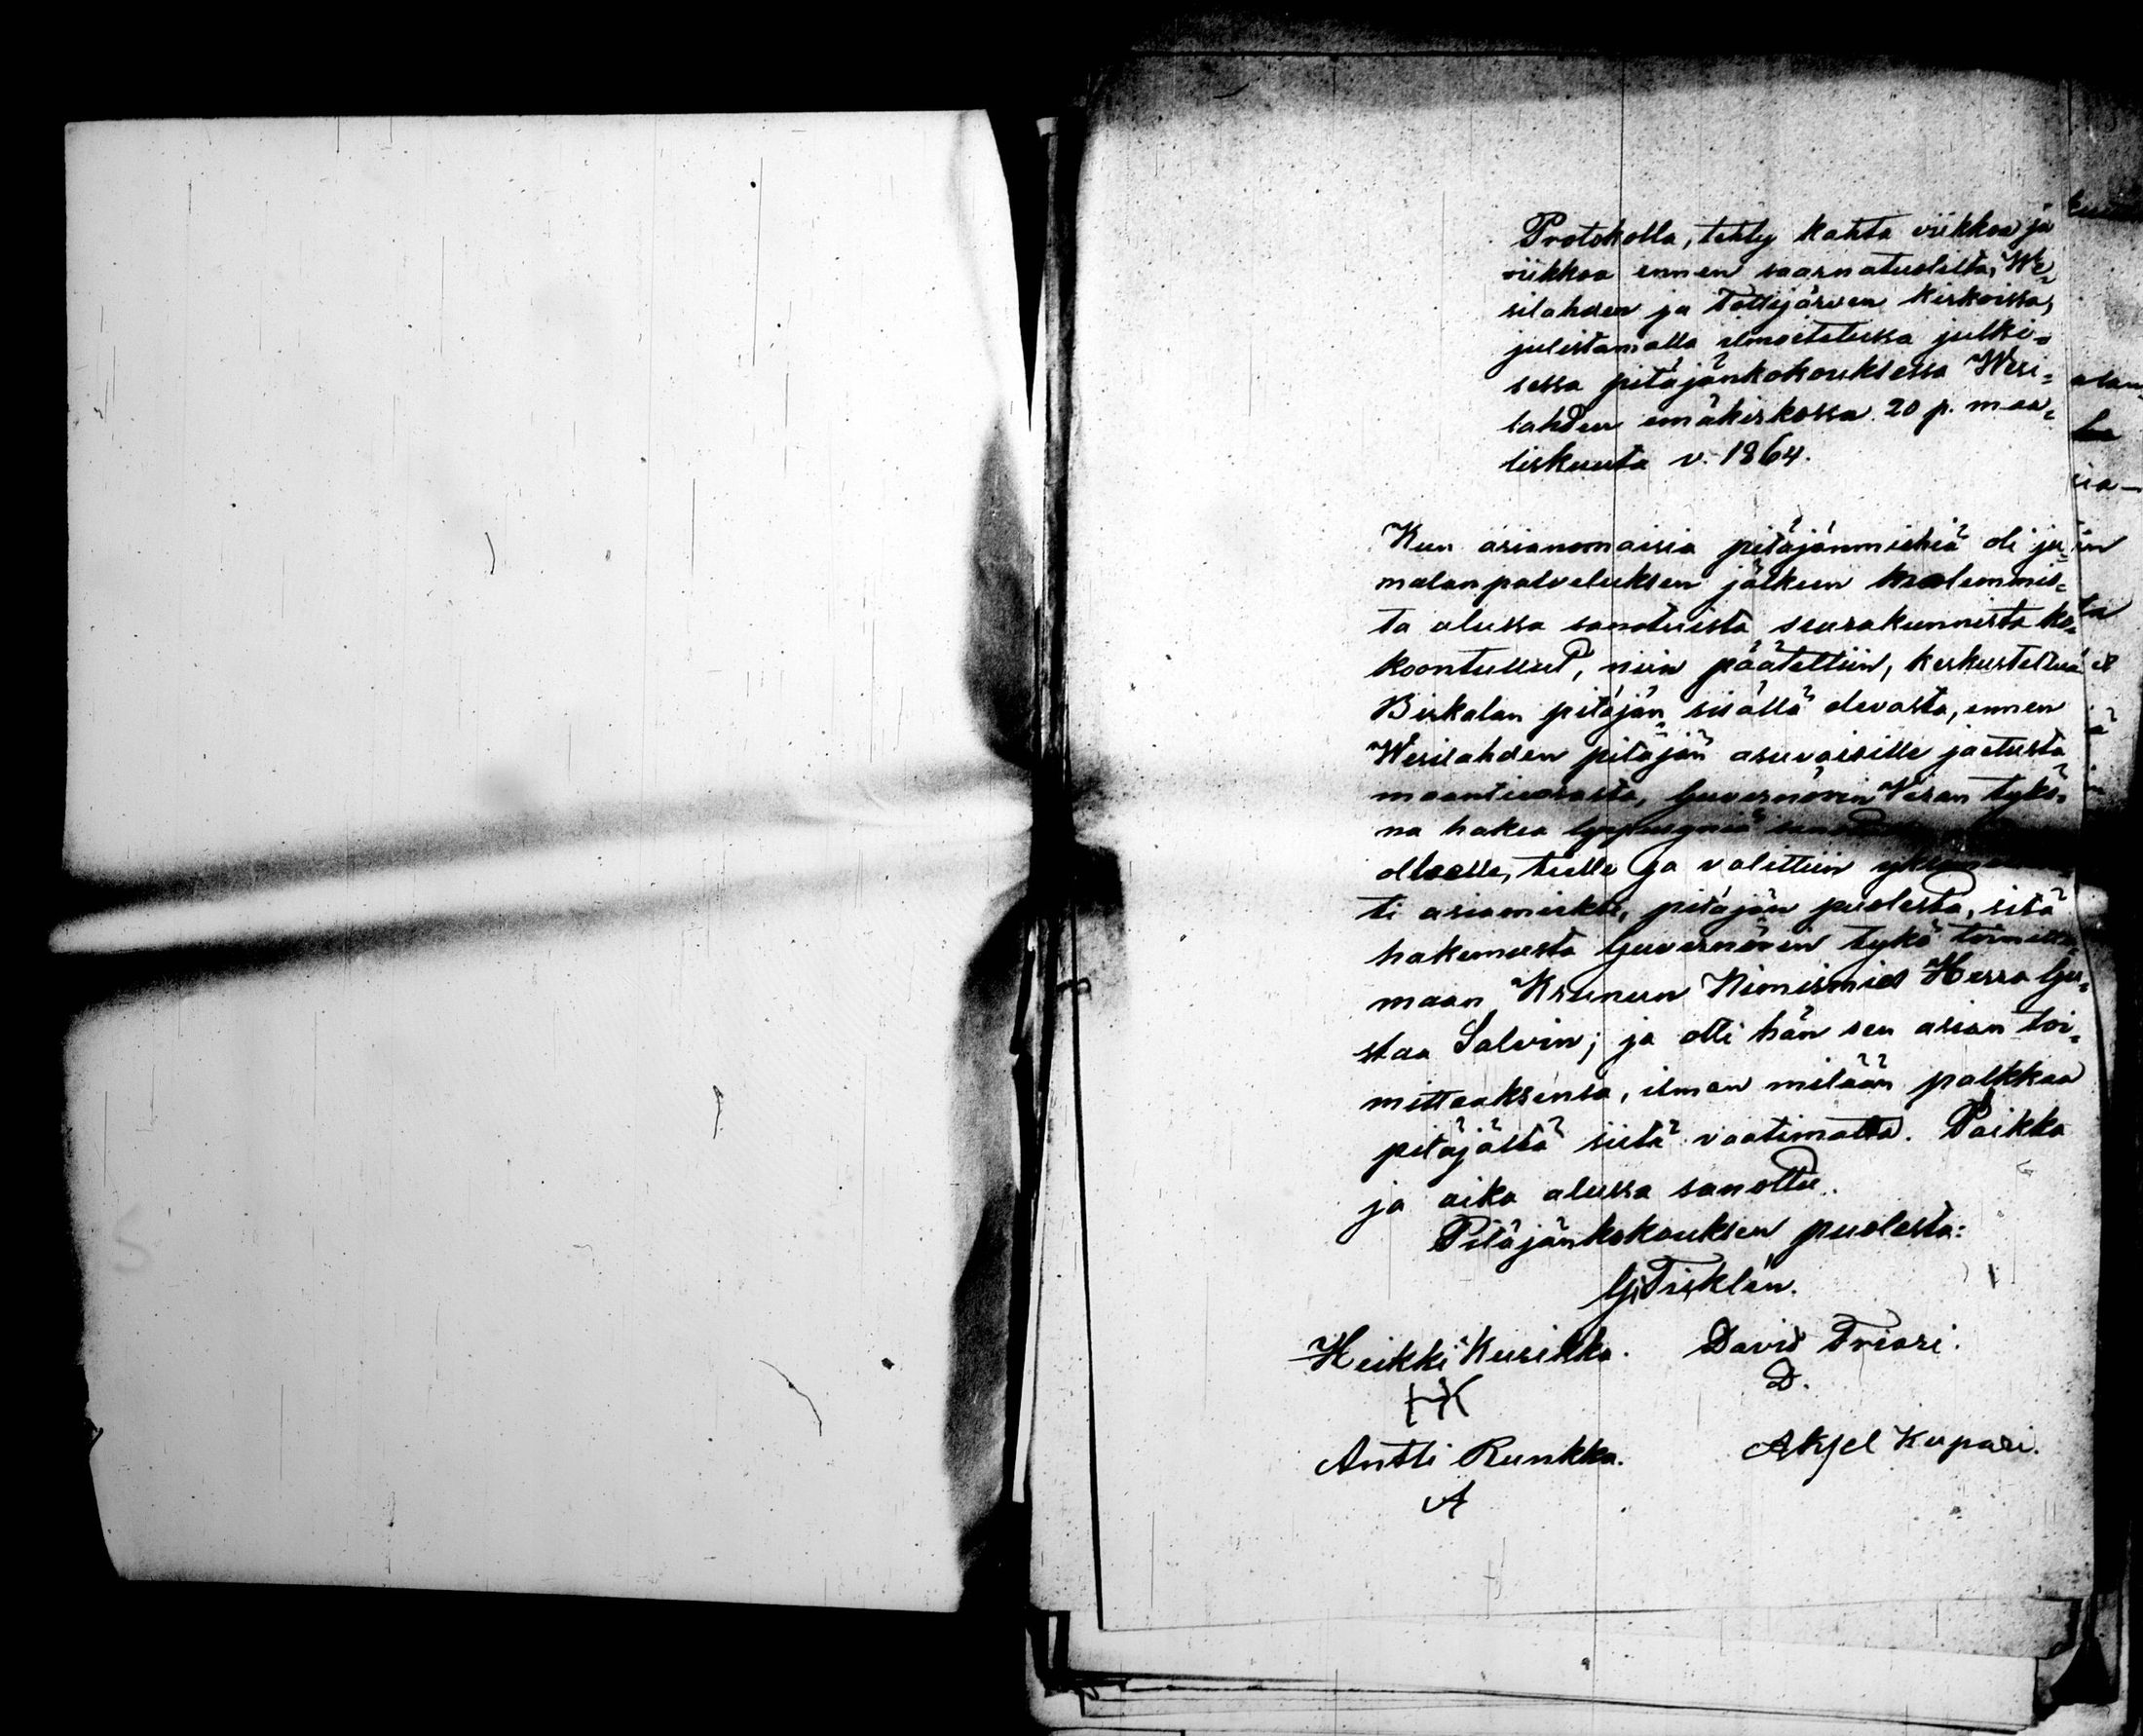 Protokolla, tehty kahta viikkoa ja
viikkoa ennen saarnatuolilta, We-
silahden ja Tottijärven kirkoissa,
julistamalla ilmoitetussa julki-
sessa pitäjänkokouksessa Wesi-
lahden emäkirkossa 20 p. maa-
liskuuta v. 1864.
Kun asianomaisia pitäjänmiehiä oli ju-
malanpalveluksen jälkeen molemmis-
ta alussa sanotuista seurakunnista ko-
koontullut, niin päätettiin, keskustellua
Birkalan pitäjän sisällä olevasta, ennen
Wesilahden pitäjän asuvaisille jaetusta
maantieosasta, Guvernörin Viran tykö-
nä hakea
olleelle, tielle ja valittiin
ti asiamieheksi, pitäjän puolesta, sitä
hakemusta Guvernörin tykö toimitta-
maan Kruunun Nimismies Herra Gu-
staa Salvin; ja otti hän sen asian toi-
mittaaksensa, ilman mitään palkkaa
pitäjältä siitä vaatimatta. Paikka
ja aika alussa sanottu.
Pitäjänkokouksen puolesta:
G. Fisklén.
Heikki Kusikka. David Friari.
HK D.
Antti Runkka. Aksel Kupari.
A